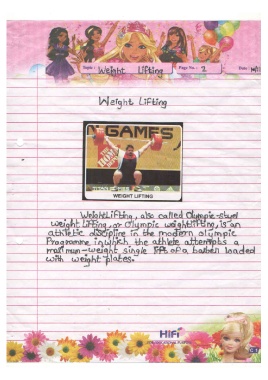 Topic : Weight Lifting Page No : 2 Date :
Weight Lifting
GAMES
WEIGHT LIFTING
Weightlifting, also called Olympic-style
weight lifting, or Olympic weightlifting, is an
athletic discipline in the modern olympic
Programme in which the athlete attempts a
maximum-weight single lift of a barbell loaded
with weight plates.
HiFi